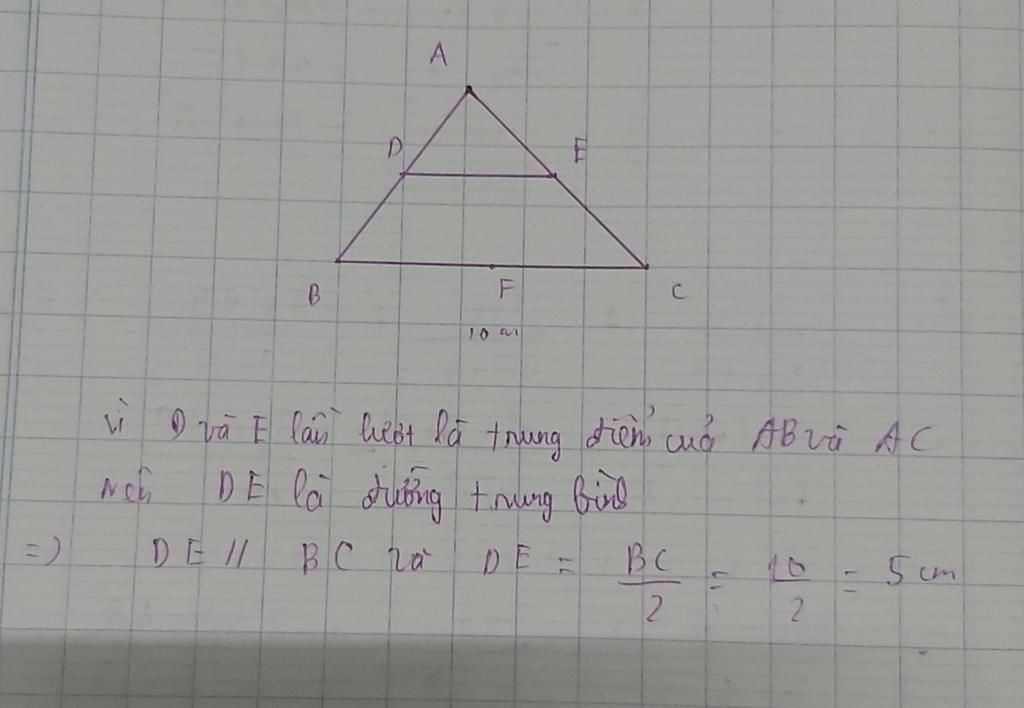 A
D E
B F C
10 cm
Vì D và E lần lượt là trung điểm của AB và AC
nên DE là đường trung bình
=> DE // BC và DE = BC/2 = 10/2 = 5 cm